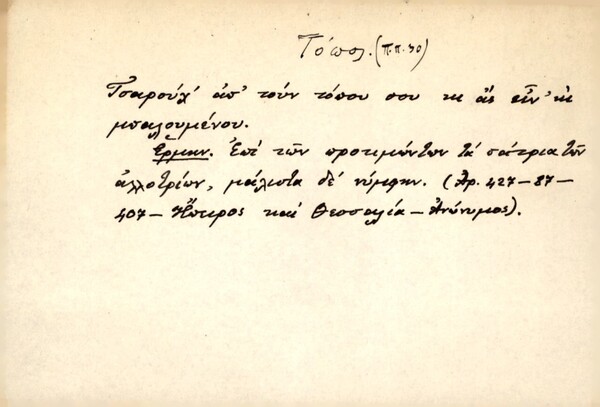 Τόπος. (Π.Π. 30)
Τσαρούχ' ἀπ' τοὺν τόπου σου κι ἂς εἶν' κὶ
μπαλουμένου.
Ἑρμην. Ἐπὶ τῶν προτιμώντων τὰ πάτρια τῶν
ἀλλοτρίων, μάλιστα δὲ νύμφην. (Ἀρ. 427-87-
407 - Ἤπειρος καὶ Θεσσαλία - Ἀνώνυμος).